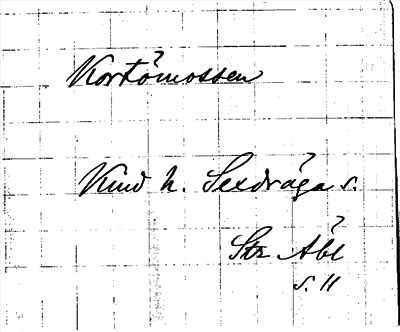 Kortömossen
Kind h. Sexdräga s.
Str Åbl
s. 11